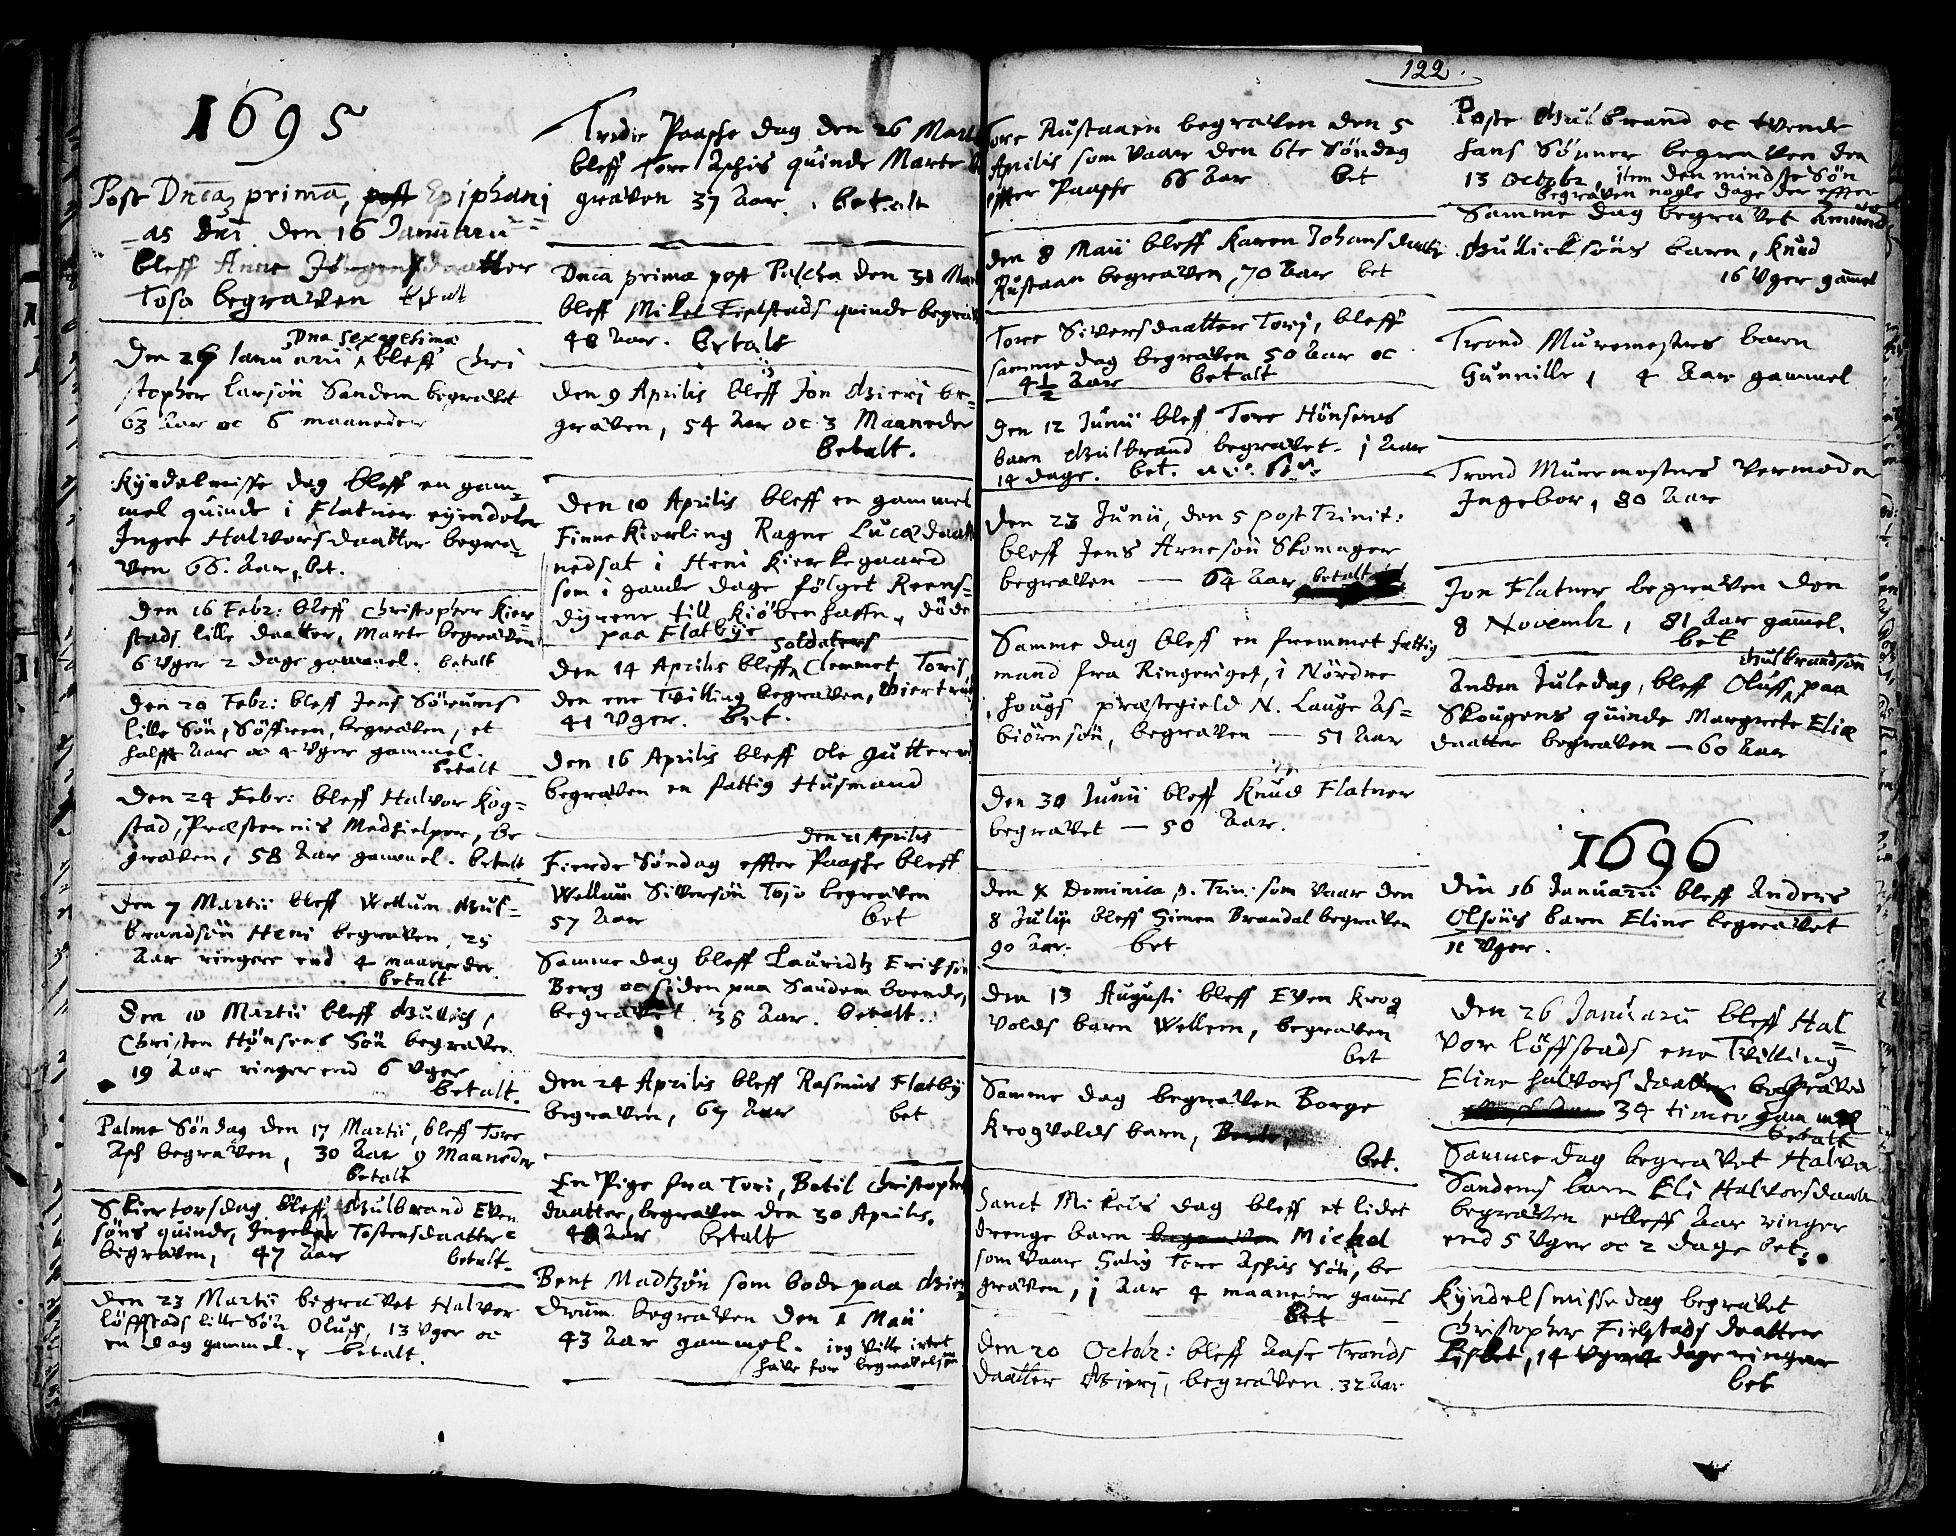 1695
Post Dnica prima, post Epiphani
as Dni den 16 Januarii
bleff Anne Jörgensdaatter
Toso begraven betalt
Dna sexagesima
Den 27 Januarii bleff Chri
stopher Larsøn Sandem begravet
63 Aar oc 6 maaneder
Kyndelmisse dag bleff en gam-
mel quinde i Flatner eyendeler
Inger Halvorsdaatter begra-
ven 66. Aar, bet.
Den 16 Febr: bleff Christopher Kier-
stads lille daatter, Marte begraven
6 Uger 2 dage gammel. betalt
Den 20 Febr: bleff Jens Sørums
lille Søn, Söffren, begraven, et
halfft Aar oc 4 Uger gammel.
betalt
Den 24 Febr: bleff Halvor Kog-
stad, Præstens Medhielper, be
graven, 58 Aar gammel. betalt
Den 7 Martii bleff Wellum Gul-
brandsøn Heni begraven, 25
Aar ringere end 4 maaneder.
betalt
Den 10 Martii bleff Gulich,
Christen Hønsens Søn begraven
19 Aar ringer end 6 Uger
betalt.
Palme Søndag den 17 Martii, bleff Tore
Asch begraven, 30 Aar 9 Maaneder
betalt
Skiertorsdag bleff Gulbrand Even
søns quinde, Ingebor Tostensdaatter
begraven, 47 Aar betalt.
Den 23 Martii begravet Halvor
Löffstads lille Søn Oluff, 13 Uger oc
en dag gammel. betalt.
Tredie Paasche dag den 26 Martii
bleff Tore Aschis quinde Marte be
graven 37 Aar. betalt
Dnca prima post Pascha den 31 Martii
bleff Mikel Fielstads quinde begrav
48 Aar. betalt
Den 9 Aprilis bleff Jon Gierj be-
graven, 54 Aar oc 3 Maaneder
betalt.
Den 10 Aprilis bleff en gammel
Finne Kierling Ragne Lucædaatt
nedsat i Heni Kierkegaard
som i gamle dage følget Reens-
dyrene till Kiöbenhaffn, döde
paa Flatbye
soldatens
Den 14 Aprilis bleff Clemmet Toris
den ene Tvilling begraven, Giertrud
41 Uger. bet.
Den 16 Aprilis bleff Ole Gutterud
begraven en fattig Husmand
den 21 Aprilis
Fierde Søndag effter Paasche bleff
Wellum Siversøn Toso begraven
57 Aar bet
Samme dag bleff Lauridtz Erichsøn
Berg oc siden paa Sandem boende,
begravet 38 Aar. betalt.
Den 24 Aprilis bleff Rasmus Flatby
begraven, 67 Aar bet
En Pige fra Tori, Botil Christophers
daatter, begraven den 30 Aprilis.
48 Aar betalt
Bent Madtzøn som bode paa Gier
drum. begraven den 1 Maii
43 Aar gammel. jeg ville intet
have for begravelsen
122.
Tore Rustaaen begraven den 5
Aprilis som vaar den 6te Søndag
effter Paasche 66 Aar bet
Den 8 Maii bleff Karen Johansdaatter
Rustaan begraven, 70 Aar bet
Tore Siversdaatter Torj, bleff
samme dag begraven 50 Aar oc
4 1/2 Aar betalt
Den 12 Junii bleff Tore Hönsens
barn Gulbrand begravet. 1 Aar
14 dage. bet.
Den 23 Junii, den 5 post Trinit:
bleff Jens Arnesøn Skomager
begraven — 64 Aar betalt
Samme dag bleff en fremmet fattig
mand fra Ringeriget, i Nördre
hougs præstegield N. Lauge As-
biörnsøn, begraven — 51 Aar
Den 30 Junii bleff Knud Flatner
begravet — 50 Aar.
Den X Dominica p. Trin: som vaar den
8 Julij bleff Simen Brandal begraven
90 Aar. bet
Den 13 Augusti bleff Even Krog
volds barn Wellem, begraven
bet
Samme dag begraven Borge
Krogvolds barn,
bet.
Sanct Mikels dag bleff et lidet
drenge barn begraven Michel
som vaar Salig Tore Aschis Søn, be
graven, 1 Aar 4 maaneder gammel
bet
Den 20 Octobr: bleff Aase Tronds
daatter Gierj, begraven. 32 Aar
Peste Gulbrand oc tvende
hans Sønner begraven den
13 Octobr, item den mindste Søn
begraven nogle dage der effter
Samme dag begravet Amund
Gulicksöns barn, Knud
16 Uger gammel
Trond Muremesters barn
Gunnille, 4 Aar gammel
Trond Muremesters Vermoder
Ingebor, 80 Aar
Jon Flatner begraven den
8 Novembr, 81 Aar gammel.
bet
Gulbrandsön
Anden Juledag, bleff Oluff paa
Skougens quinde Margrete Eliæ
daatter begraven — 60 Aar
1696
Den 16 Januarii bleff Anders
Olsöns barn Eline begravet
11 Uger.
Den 26 Januarii bleff Hal-
vor Löffstads ene Tvilling
Eline Halvors daatter begraved
34 timer gammel
betalt
Samme dag begravet Halvor
Sandems barn Eli Halvorsdaatter
begraven elleff Aar ringer
end 5 Uger oc 2 dage bet.
Kyndelsmisse dag begravet
Christopher Fielstads daatter
Lisbet, 14 Uger 4 dage ringer
bet